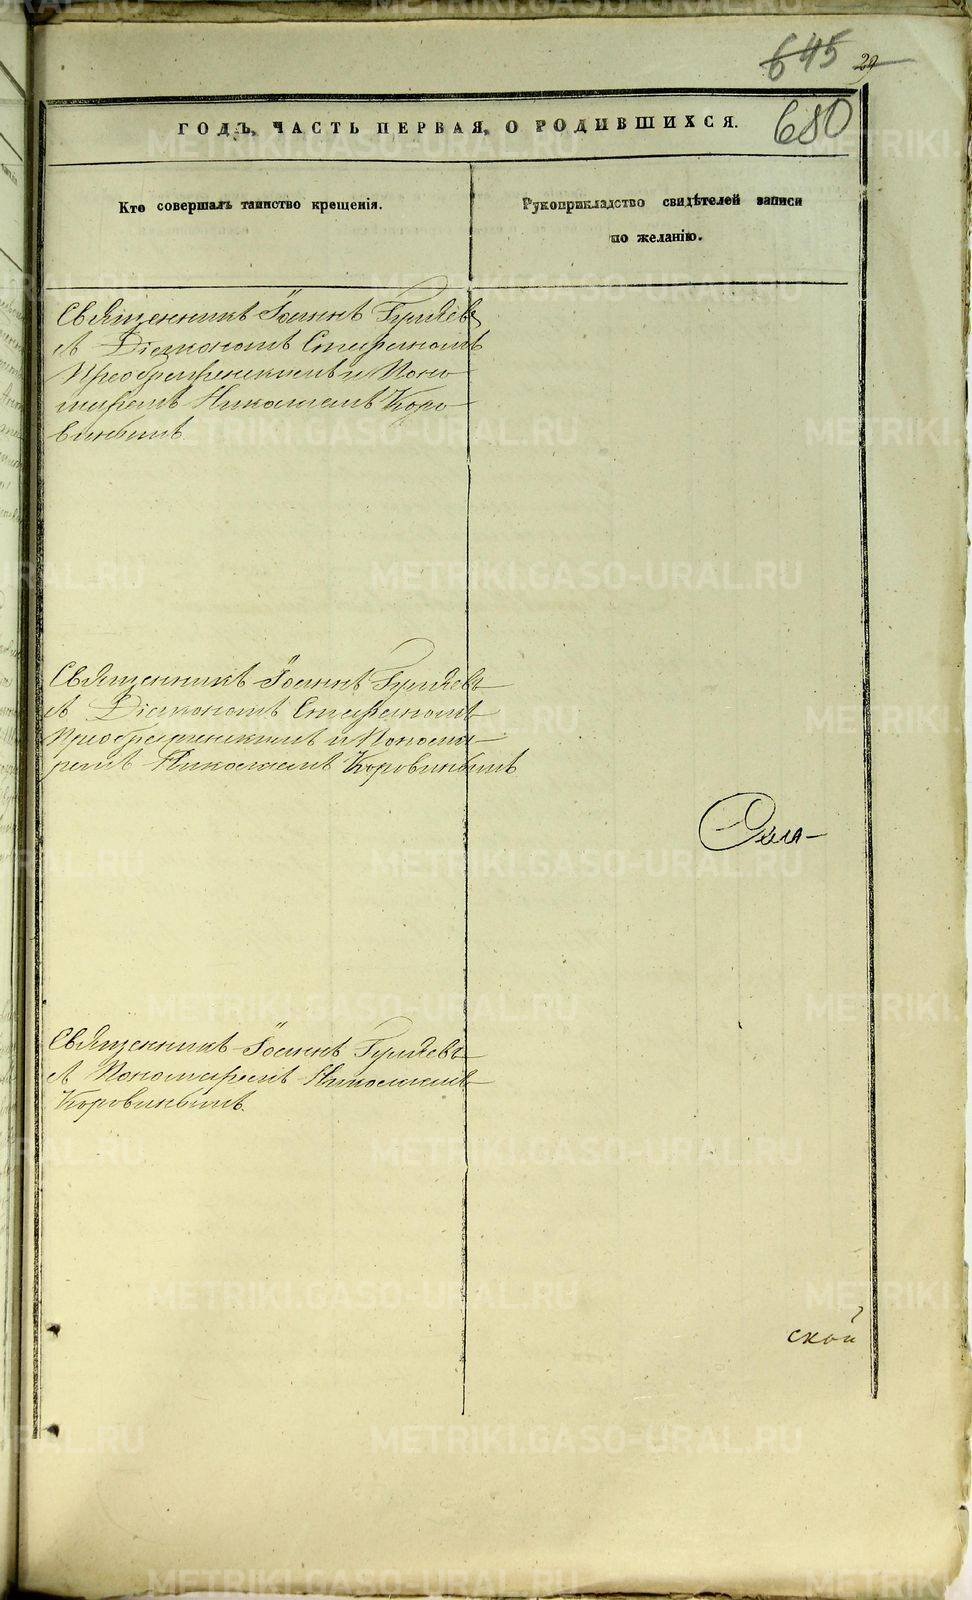 645 29
680
ГОДЪ, ЧАСТЬ ПЕРВАЯ, О РОДИВШИХСЯ.
Кто совершалъ таинство крещенія.
Рукоприкладство свидѣтелей записи
по желанію.
Священникъ Іоаннъ Гуляевъ
съ Діакономъ Стефаномъ
Преображенскимъ и Поно-
маремъ Николаемъ Коро-
винымъ
Священникъ Іоаннъ Гуляевъ
съ Діакономъ Стефаномъ
Преображенскимъ и Понома-
ремъ Николаемъ Коровинымъ
Священникъ Іоаннъ Гуляевъ
съ Пономаремъ Николаемъ
Коровинымъ.
ской
METRIKI.GASO-URAL.RU